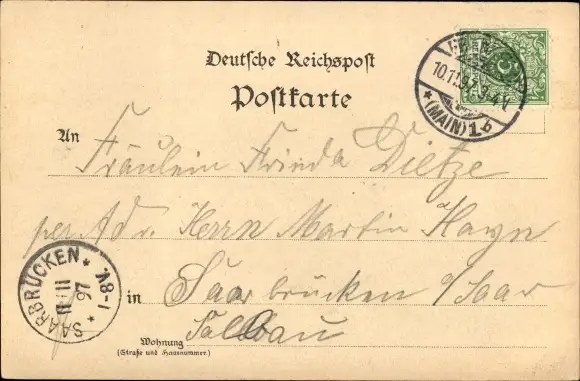 Deutsche Reichspost
Postkarte
FRANKFURT
10.11.97. 3-4V.
* (MAIN) 1 b
An
Fräulein Frieda Dietze
per Adr. Herrn Martin Hayn
SAARBRÜCKEN *
11/11
97
* 7-8V.
in Saarbrücken a/Saar
Wohnung
(Straße und Hausnummer.)
Saalbau